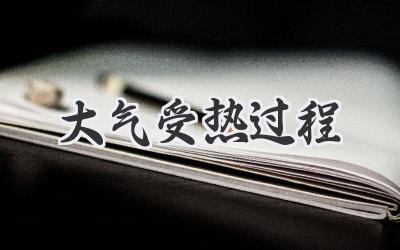 大气受热过程